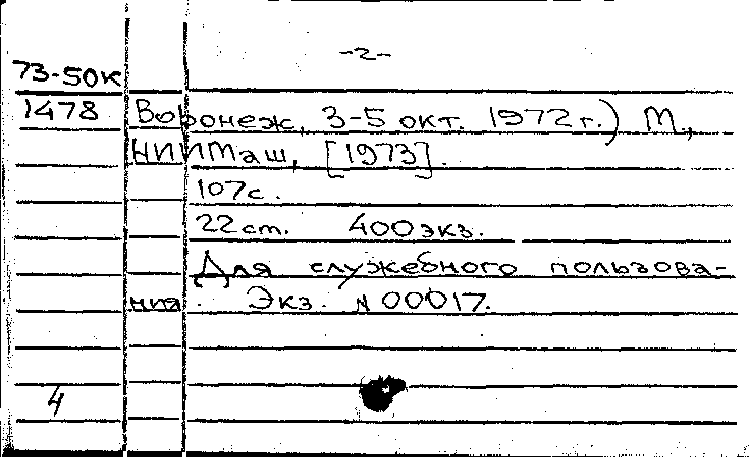 -2-
73-50К
1478 Воронеж, 3-5 окт. 1972 г.) М.,
НИИМаш, [1973].
107с.
22 ст. 400 экз.
Для служебного пользова-
ния. Экз. N 00017.
4